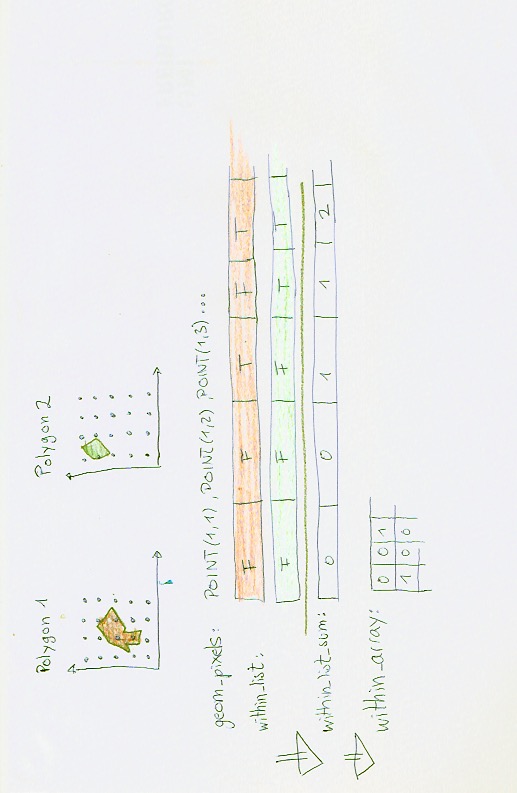 Polygon 1 Polygon 2
geom_pixels: POINT(1,1), POINT(1,2), POINT(1,3)...
within_list: F F T F T
F F F T T
within_list_sum: 0 0 1 1 2
within_array: 0 0 1
1 0 0